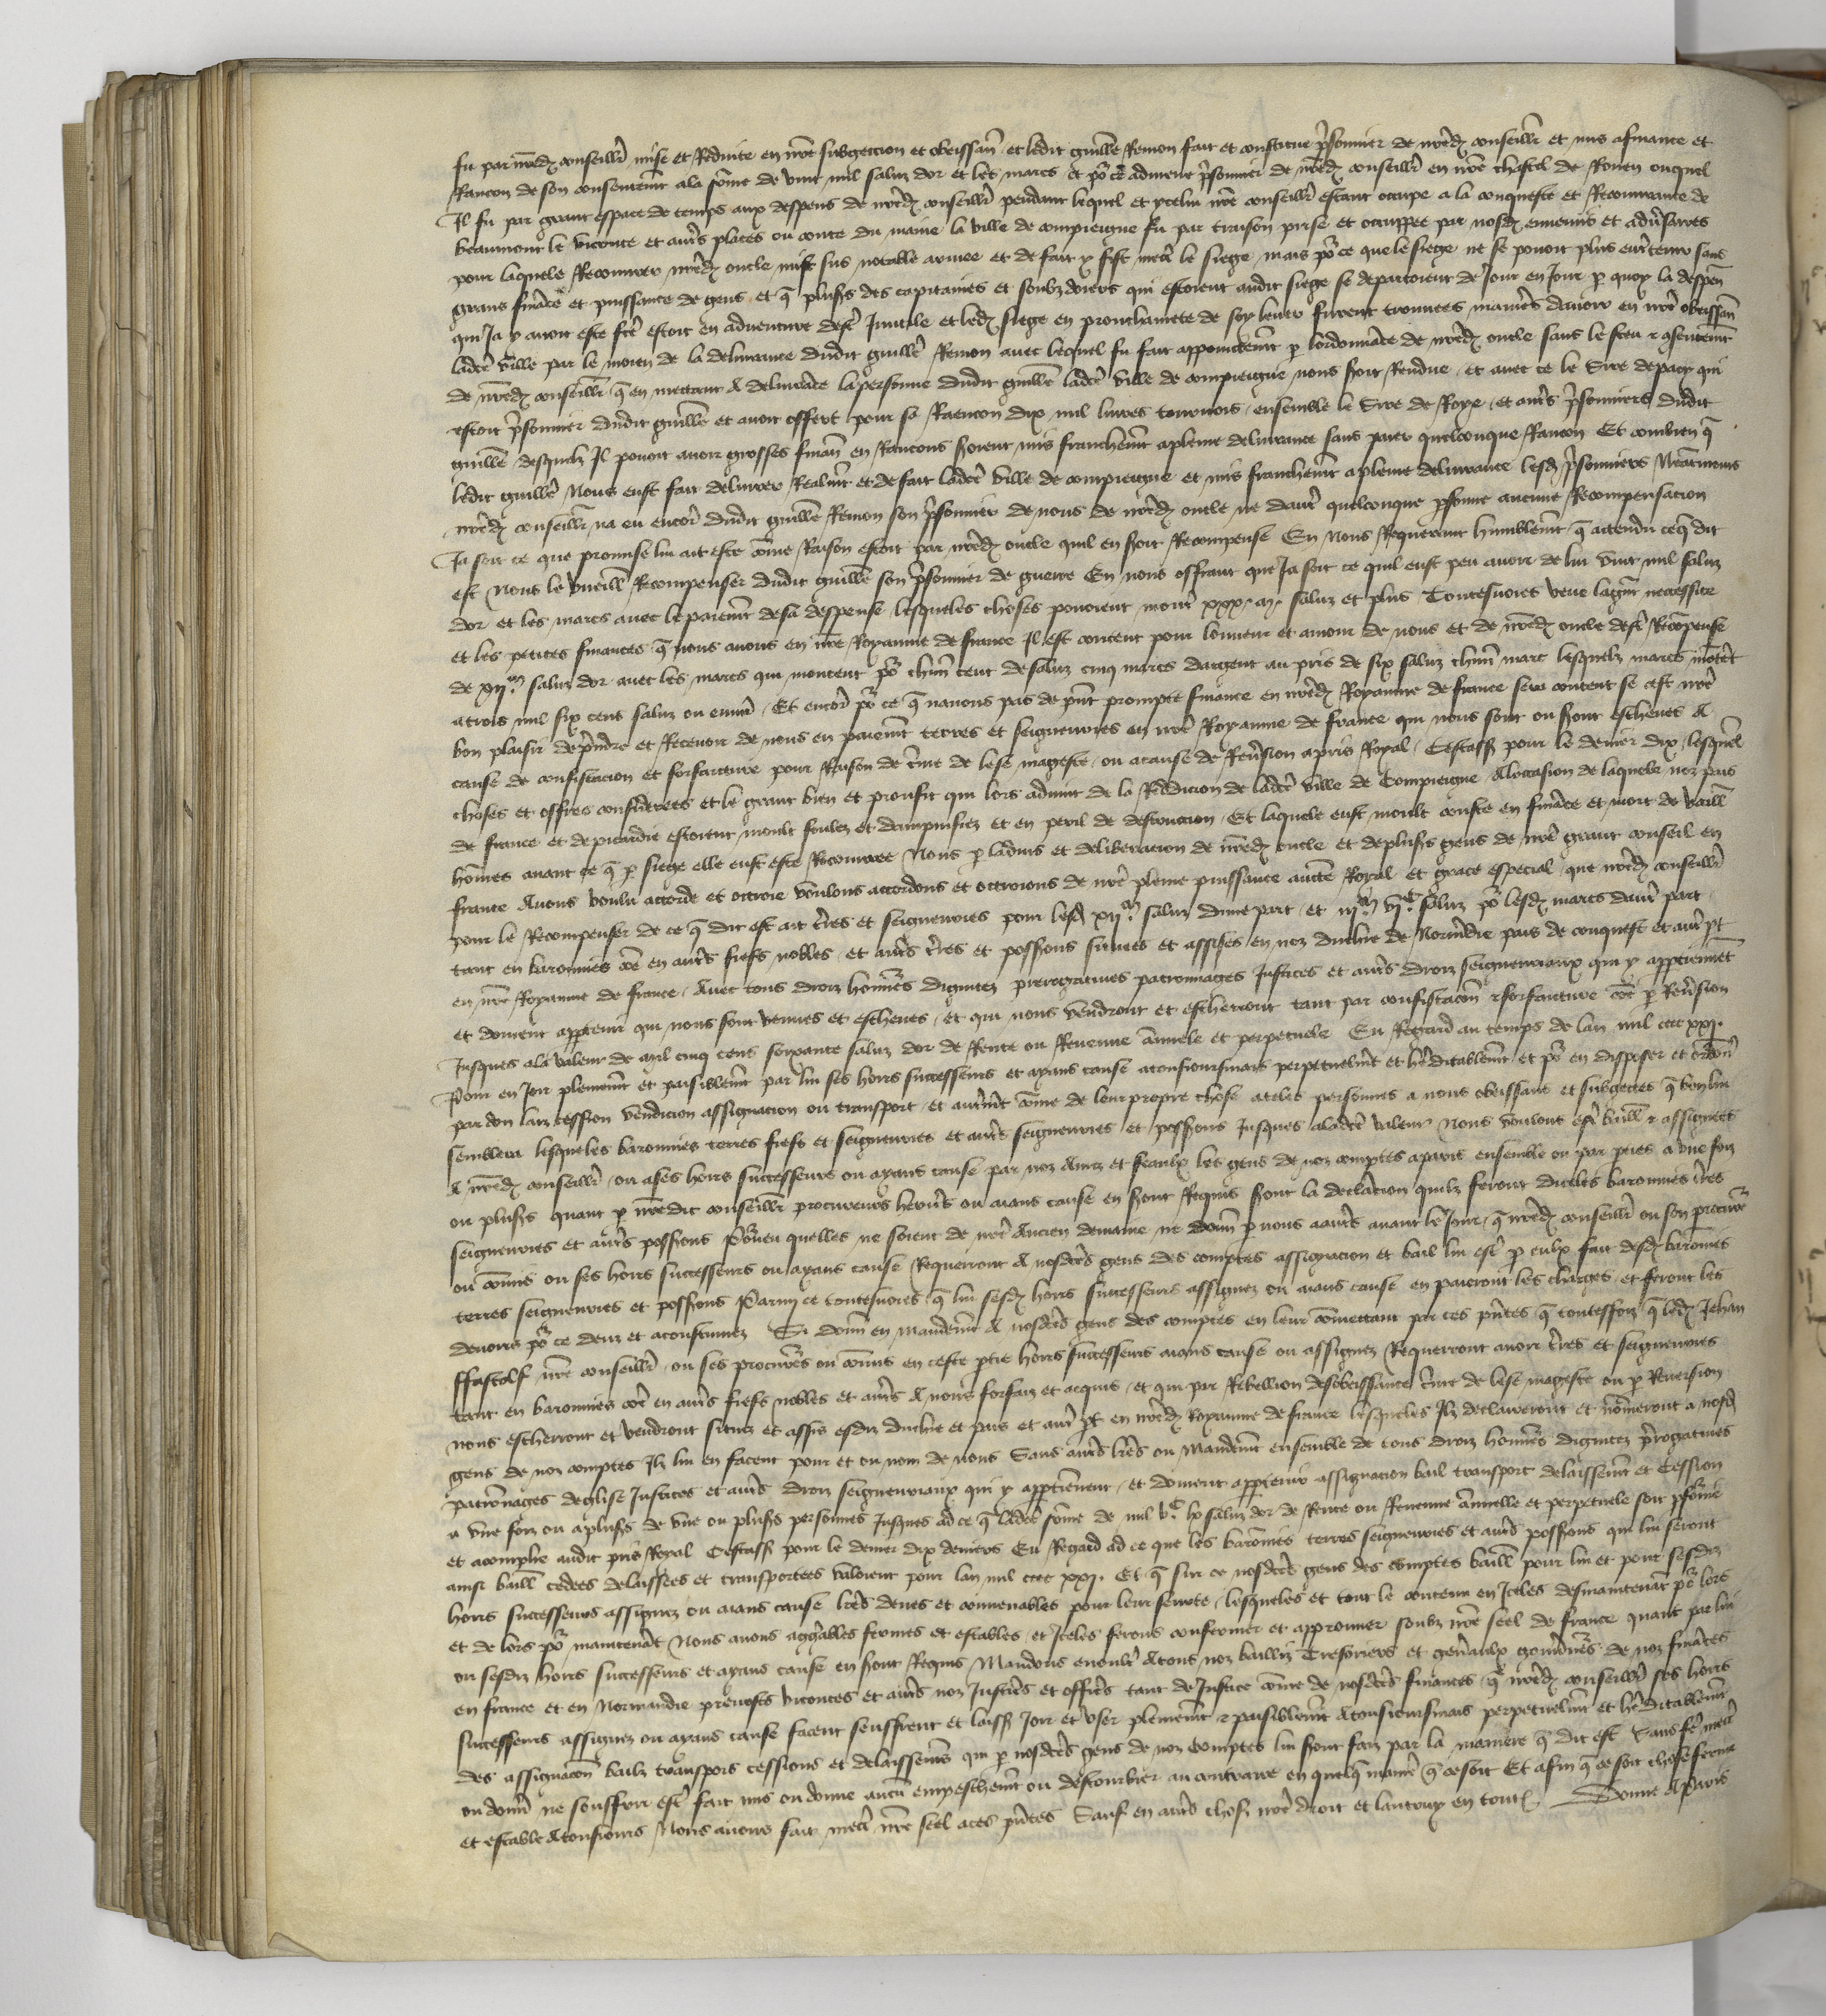 fu par nred conseillr mise et Reduite en nre subgeccion et obeissan et ledit guille Remon fait et constitue prisonnier de nred conseillr et mis afinance et
Rancon de son consentemt ala some de vint mil saluz dor et les marcs et po ce admene prisonnier de nred conseillr en nre chastel de Rouen ouquel
Il fu par grant espace de temps aux despens de nred conseillr pendant lequel et ycelui nre conseillr estant occupe a la conqueste et Recouvrance de
beaumont le viconte et autrs places ou conte du maine la ville de compieigne fu par traison prise et occuppee par nosd ennemis et adversaires
pour laquele Recouvrer nred oncle mist sus notable armee et de fait y fist mectr le siege mais po ce que le siege ne se povoit plus entretenir sans
grans finace et puissance de gens et q plusrs des capitaines et souldoiers qui estoient audit siege se departoient de Jour en Jour p quoy la despen
qui Ja y avoit este fcte estoit en adventure destr Inutile et led siege en prouchainete de soy lever furent trouvees manieres davoir en nre obeissan
ladcte ville par le moien de la delivrance dudit guille Remon avec lequel fu fait appoinctemt p lordonnace de nred oncle sans le sceu & consentemt
de nred conseillr q en mectant A delivrace la personne dudit guille ladcte ville de compieigne nous seroit Rendue et avec ce le Sire de pacy qui
estoit prisonnier dudit guille et avoit offert pour sa Raencon dix mil livres tournois ensemble le Sire de Roye et autrs prisonniers dudit
guille desquelz Il povoit avoir grosses finan en Rancons seroient mis franchemt a pleine delivrance sans paier quelconque Rancon Et combien q
ledit guille Nous eust fait delivrer Realmt et de fait ladcte ville de compieigne et mis franchemt a pleine delivrance lesd prisonniers Neatmoins
nred conseillr na eu encor dudit guille Remon son prisonnier de nous de nred oncle ne dautr quelconque psonne aucune Recompensacion
Ja soit ce que promise lui ait este come Raison estoit par nred oncle quil en seroit Recompense En nous Requerant humblemt q attendu ceq dit
est Nous le vueillons Recompenser dudit guille son prisonnier de guerre En nous offrant que Ja soit ce quil eust peu avoir de lui vint mil saluz
dor et les marcs avec le paiemt de sa despense lesqueles choses povoient montr xxx m saluz et plus Toutesvoies veue lagrat necessite
et les petites finances q nous avons en nre Royaume de france Il est content pour lonneur et amour de nous et de nred oncle destr Recopense
de xii m saluz dor avec les marcs qui montent po chun cent de saluz cinq marcs dargent au pris de six saluz chun marc lesquelz marcs motet
atrois mil six cens saluz ou environ Et encor po ce q navons pas de pnt prompte finance en nred Royaume de france sera content se cest nre
bon plaisir de prendre et Recevoir de nous en paiemt terres et seigneuries en nre Royaume de france qui nous sont ou seront escheues A
cause de confiscacion et forfaicture pour Raison de crime de lese mageste ou acause de Reversion apris Royal Cestass pour le denier dix lesqueles
choses et offres considerees et le grant bien et proufit qui lors advint de la Reddicion de ladcte ville de Compieigne A loccasion de laquele noz pais
de france et de picardie estoient moult foulez et dampnifiez et en peril de destruccion Et laquele eust moult couste en finace et mort de vaill
homes avant ce q p siege elle eust este Recouvree Nous p ladvis et deliberacion de nred oncle et de plusrs gens de nre grant conseil en
france Avons voulu accorde et octroie voulons accordons et octroions de nre pleine puissance aucte Royal et grace especial que nred conseillr
pour le Recompenser de ce q dit est ait trres et seigneuries pour lesd xii m saluz dune part et iii m vi c saluz po lesd marcs dautre part
tant en baronnies coe en autrs fiefs nobles et autrs trres et possions situees et assises en noz duchie de Normdie pais de conquest et autr pt
en nre Royaume de france Avec tous droiz honnrs dignitez prerogatives patronnages Justices et autrs droiz seigneuriaux qui y apptiennet
et doivent appteuir qui nous sont venues et escheues et qui nous vendront et escherront tant par confiscacon & forfaicture coe p Reversion
Jusques ala valeur de mil cinq cens soixante saluz dor de Rente ou Revenue annuele et perpetuele Eu Regard au temps de lan mil cccc xxii
Pour en Joir plainemt et paisiblemt par lui ses hoirs successeurs et ayans cause atousioursmais perpetuelmt et hereditablemt et po en disposer et ordonr
par don laiz cession vendicion assignacion ou transport et autremt come de leur propre chose ateles personnes a nous obeissans et subgectes q bon lui
semblera lesqueles baronnies terres fiefs et seigneuries et autrs seigneuries et possions Jusques aladcte valeur Nous voulons estr baill & assignees
A nred conseillr ou ases hoirs successeurs ou ayans cause par noz Amez et feaulx les gens de noz comptes aparis ensemble ou par pties a vne foiz
ou plusrs quant p nre dit conseillr procureurs heritrs ou aians cause en seront Requis seront la declaracion quilz feront diceles baronnies trres
seigneuries et autrs possions Poveu quelles ne soient de nre Ancien demaine ne donn p nous aautrs avant le Jour q nred conseillr ou son procurr
ou comis ou ses hoirs successeurs ou ayans cause Requerront A nosdctes gens des comptes assignacion et bail lui estr p eulx fait desd baronnies
terres seigneuries et possions Parmi ce toutesvoies q lui sesd hoirs successeurs assignez ou aians cause en paieront les charges et feront les
devoirs po ce deuz et acoustumez Si donn en mandemt A nosdctes gens des comptes en leur comectant par ces pntes q toutesfoiz q led Jehan
ffastolf nre conseillr ou ses procurrs ou comis en ceste ptie hoirs successeurs aians cause ou assignez Requerront avoir trres et seigneuries
tant en baronnies coe en autrs fiefs nobles et autrs A nous forfaiz et acquis et qui par Rebellion desobeissance crime de lese mageste ou p Reversion
nous escherront et vendront situez et assis esdiz duchie et pais et autr pt en nred Royaume de france lesqueles Ilz declaireront et nomeront a nosd
gens de noz comptes Ilz lui en facent pour et ou nom de nous Sans autrs lrres ou Mandemt ensemble de tous droiz honnrs dignitez prerogatives
patronages deglise Justices et autrs droiz seigneuriaux qui y apptiennent et doivent appteuir assignacion bail transport delaissemt et Cession
a vne foiz ou aplusrs de vne ou plusrs personnes Jusques ad ce q ladcte some de mil v c lx saluz dor de Rente ou Revenue annuelle et perpetuele soit pfourme
et acomplie audit pris Royal Cestass pour le denier dix deniers Eu Regard ad ce que les baronnies terres seigneuries et autrs possions qui lui seront
ainsi baill cedees delaissees et transportees valoient pour lan mil cccc xxii Et q sur ce nosdctes gens des comptes baill pour lui et pour sesdiz
hoirs successeurs assignez ou aians cause lres deues et convenables pour leur seurete lesqueles et tout le contenu en Iceles desmaintenat po lors
et de lors po maintenat Nous avons aggreables fermes et estables et Iceles ferons confermer et approuver soubz nre seel de france quant par lui
ou sesdiz hoirs successeurs et ayans cause en serons Requis Mandons enoultr Atous noz bailliz Tresoriers et generaulx gouvnrs de noz finaces
en france et en Normandie prevosts vicontes et autrs noz Justicrs et officrs tant de Justice come de nosdctes finances q nred conseillr ses hoirs
successeurs assignez ou ayans cause facent seuffrent et laiss Joir et user plainemt & paisiblemt Atousioursmais perpetuelmt et hereditablemt
des assignacon bailz transpors cessions et delaissemes qui p nosdctes gens de noz comptes lui seront faiz par la maniere q dit est Sans fr mectr
ou donnr ne souffrir estr fait mis ou donne aucu empeschemt ou destourbier au contraire en quelq manie q ce soit Et afin q ce soit chose ferme
et estable Atousiours Nous avons fait mectr nre seel aces pntes Sauf en autrs choses nre droit et lautruy en toutes Donne A Paris